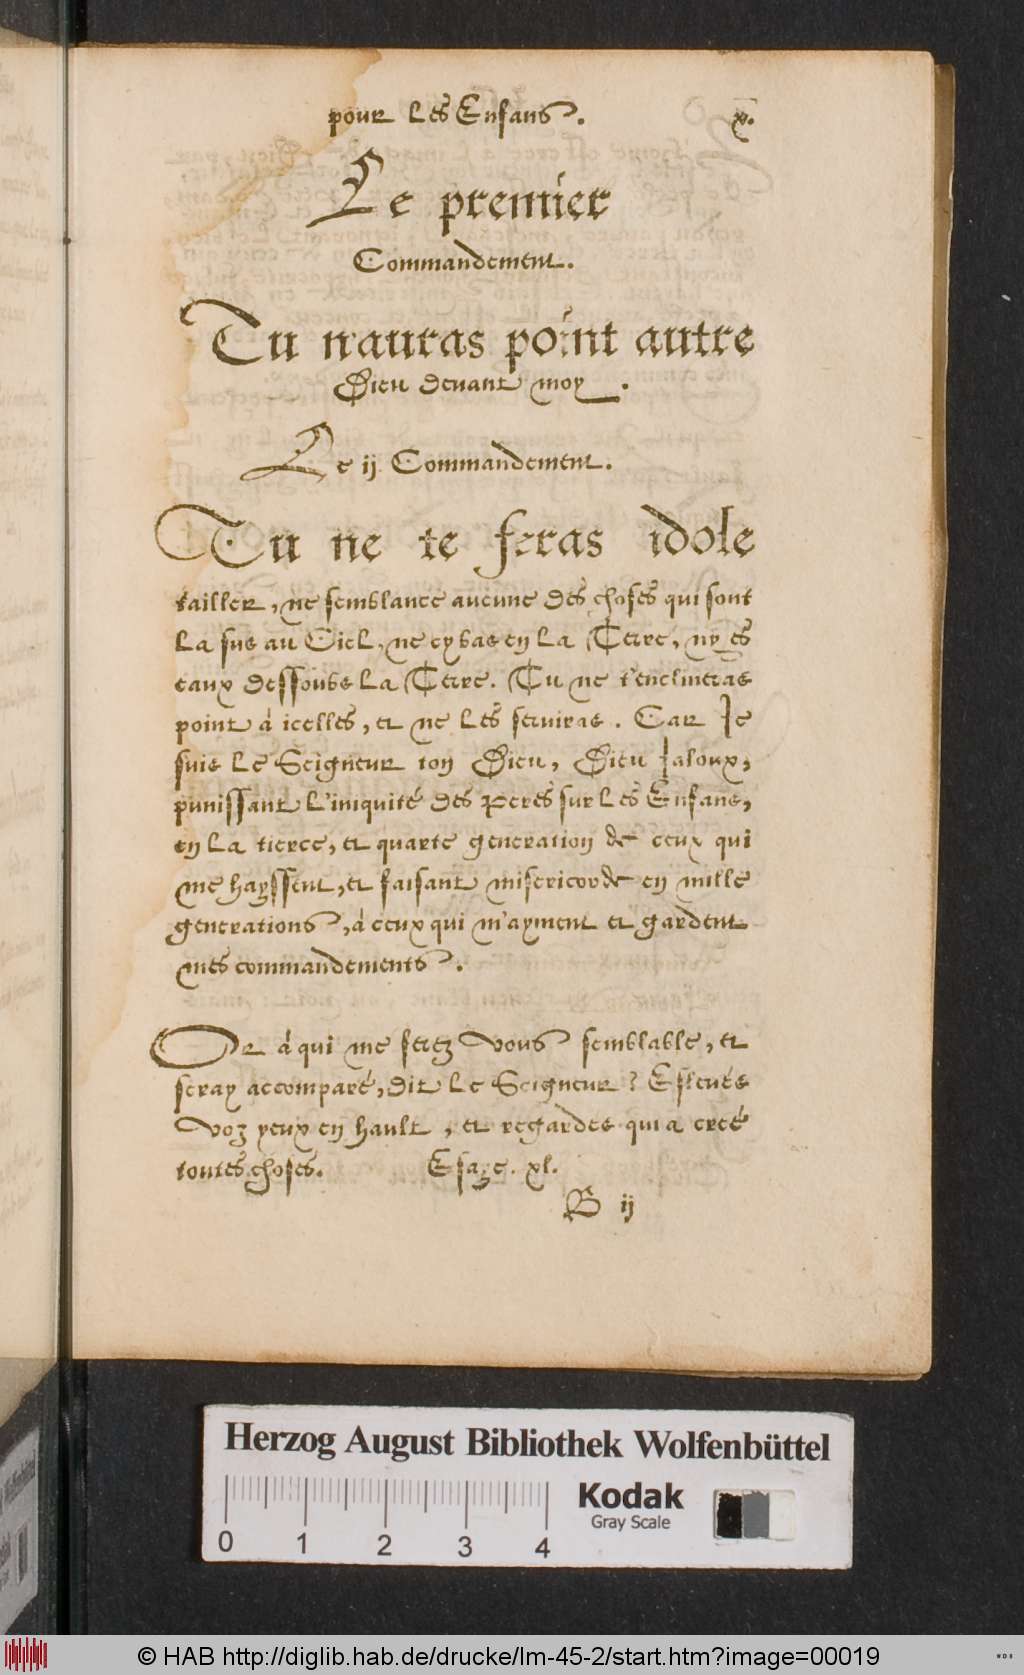 pour les Enfans. x.
Le premier
Commandement.
Tu n'auras point autre
Dieu deuant moy.
Le ij Commandement.
Tu ne te feras idole
tailler, ne semblance aucune des choses qui sont
la sus au Ciel, ne cy bas en la Terre, ny es
eaux dessoubs la Terre. Tu ne t'enclineras
point à icelles, et ne les seruiras. Car Je
suis le Seigneur ton Dieu, Dieu Jaloux,
punissant l'iniquité des Peres sur les Enfans,
en la tierce, et quarte generation de ceux qui
me hayssent, et faisant misericorde en mille
generations, à ceux qui m'ayment et gardent
mes commandements.
Or à qui me ferez vous semblable, et
seray accomparé, dit le Seigneur? Esleués
voz yeux en hault, et regardes qui a creé
toutes choses. Esaye. xl.
B ij
Herzog August Bibliothek Wolfenbüttel
Kodak
Gray Scale
0 1 2 3 4
© HAB http://diglib.hab.de/drucke/lm-45-2/start.htm?image=00019